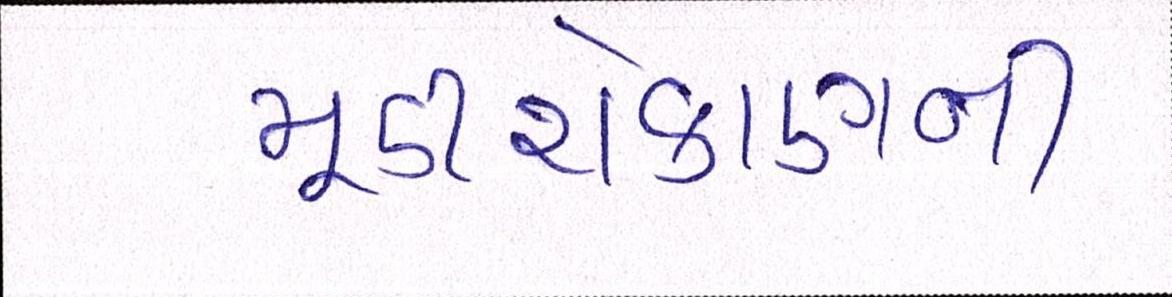 મૂડીરોકાણની